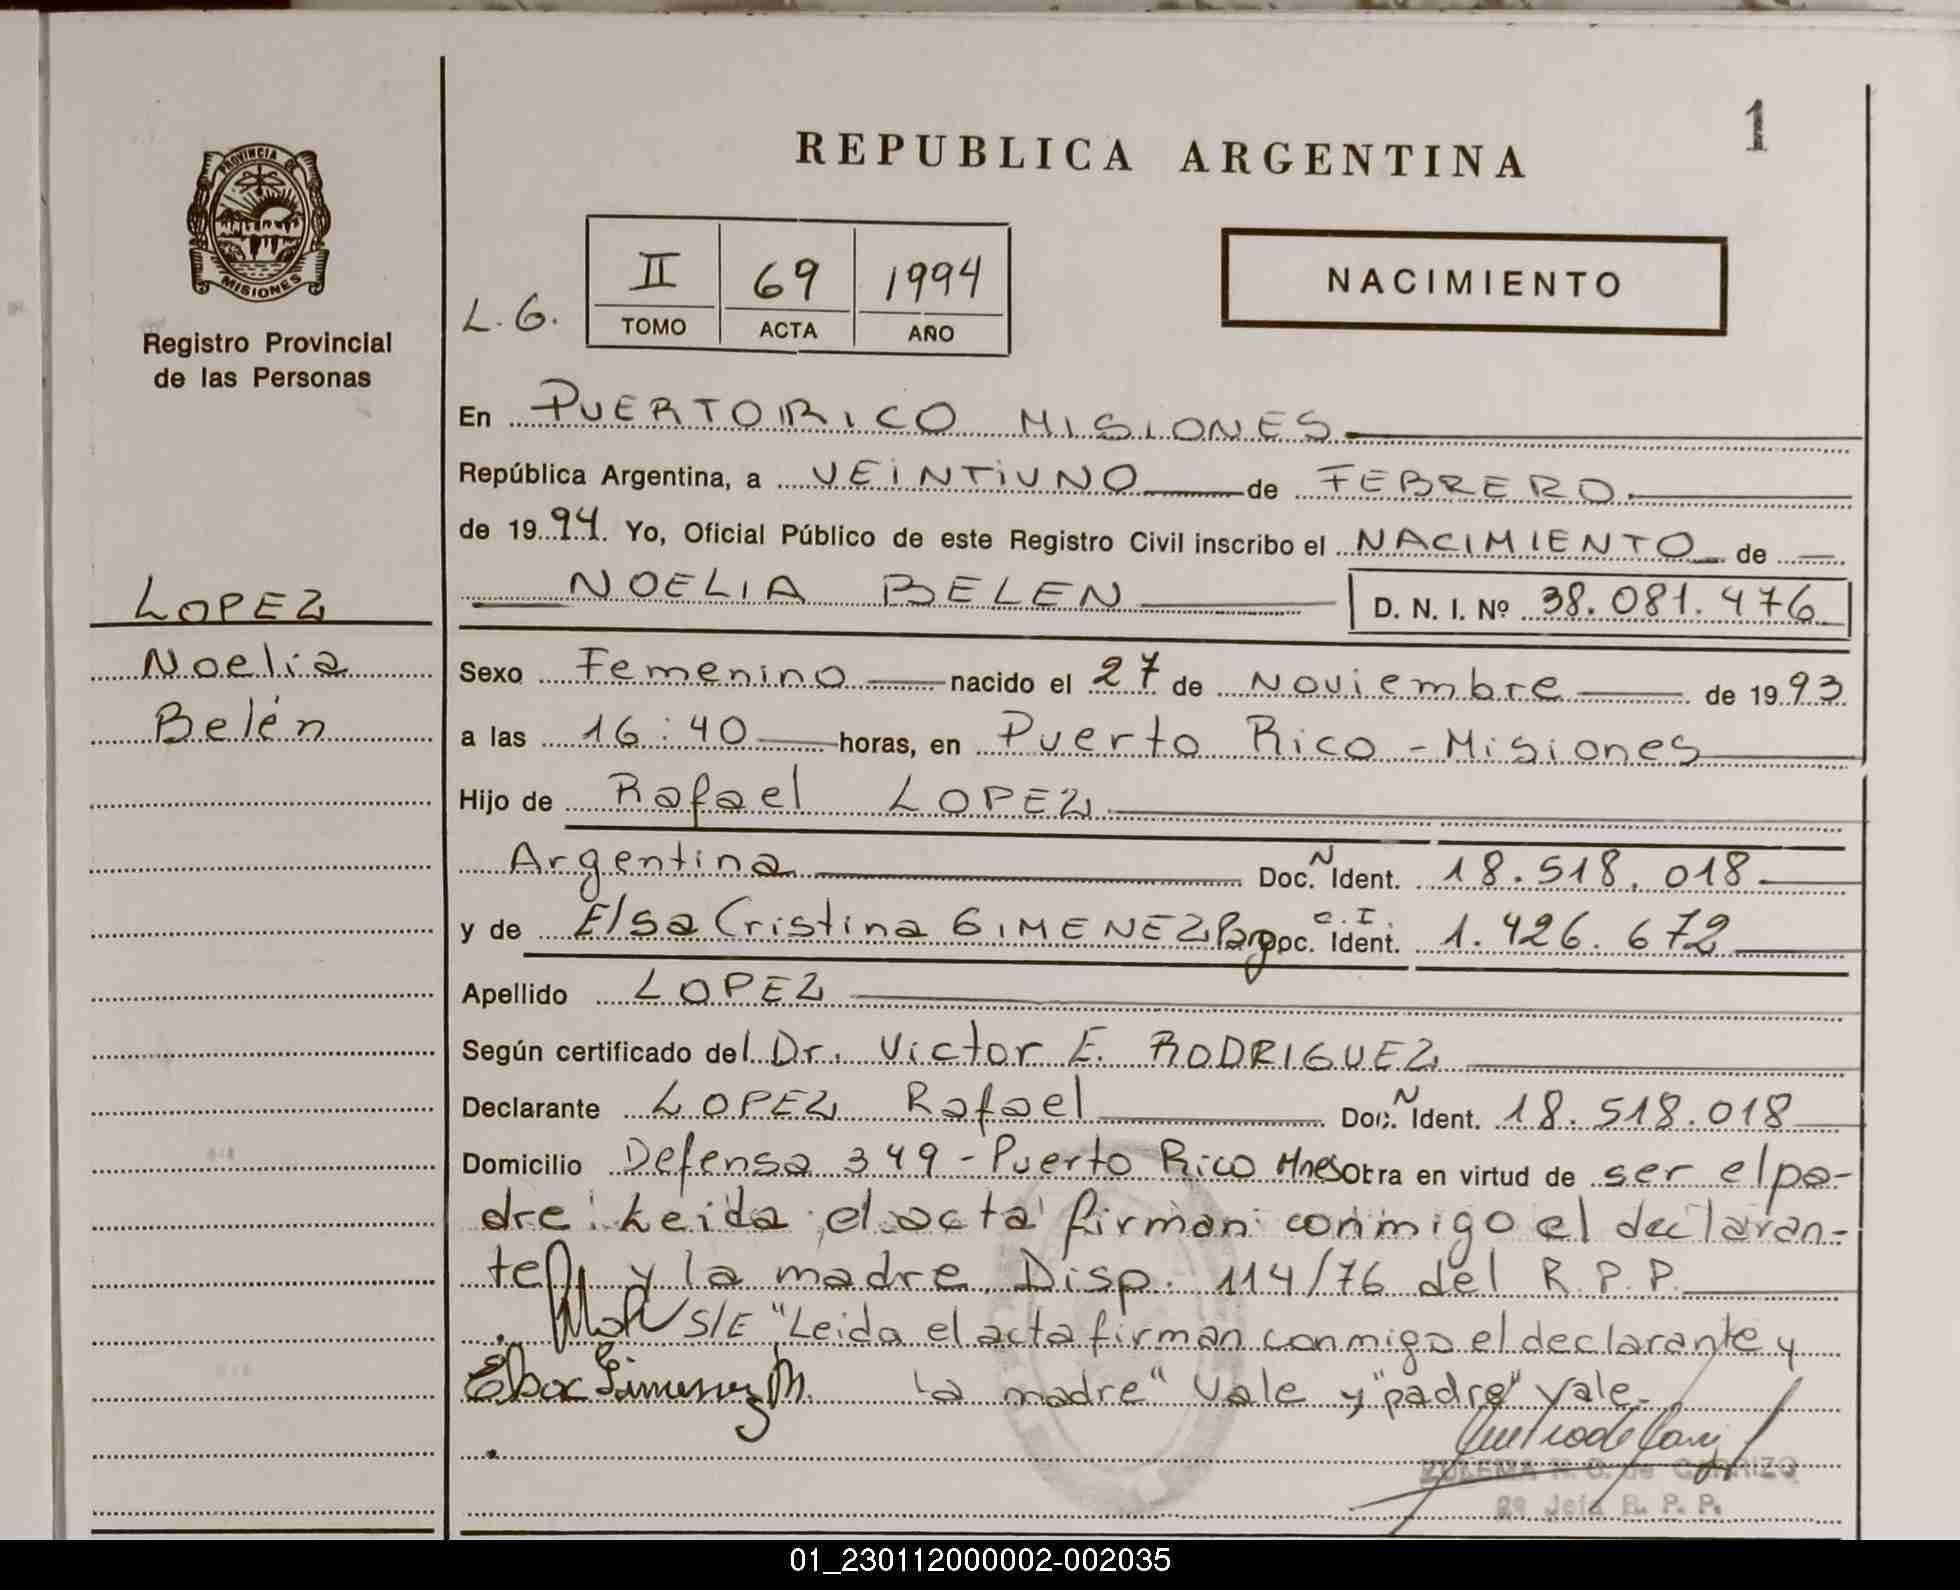 1
REPUBLICA ARGENTINA
PROVINCIA DE
MISIONES
Registro Provincial
de las Personas
L.G.
II 69 1994
TOMO ACTA AÑO
NACIMIENTO
LOPEZ
Noelia
Belén
En PUERTO RICO MISIONES
República Argentina, a VEINTIUNO de FEBRERO
de 1994. Yo, Oficial Público de este Registro Civil inscribo el NACIMIENTO de
NOELIA BELEN D. N. I. Nº 38.081.476
Sexo Femenino nacido el 27 de Noviembre de 1993
a las 16:40 horas, en Puerto Rico - Misiones
Hijo de Rafael LOPEZ
Argentina Doc. N Ident. 18.518.018
y de Elsa Cristina GIMENEZ Parg Doc. C.I. Ident. 1.426.672
Apellido LOPEZ
Según certificado del Dr. Victor E. RODRIGUEZ
Declarante LOPEZ Rafael Doc. N Ident. 18.518.018
Domicilio Defensa 349 - Puerto Rico Mnes Obra en virtud de ser el pa-
dre. Leida el acta firman conmigo el declaran-
te y la madre. Disp. 114/76 del R.P.P.
S/E "Leida el acta firman conmigo el declarante y
la madre" Vale y "padre" Vale.
ZULEMA N. O. de CARRIZO
2ª Jefa R. P. P.
01_230112000002-002035